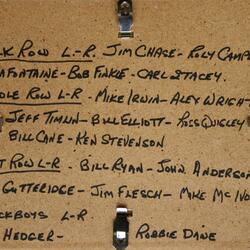 CK ROW L-R. JIM CHASE - ROLY CAMP
AFONTAINE - BOB FINKE - CARL STACEY.
DLE ROW L-R - MIKE IRWIN - ALEX WRIGHT
JEFF TIMLIN - BILL ELLIOTT - ROSS QUIGLEY
BILL CANE - KEN STEVENSON
T ROW L-R. BILL RYAN - JOHN ANDERSON
GUTTERIDGE - JIM FLESCH - MIKE MCIVO
CKBOYS L-R
HEDGER. ROBBIE DANE